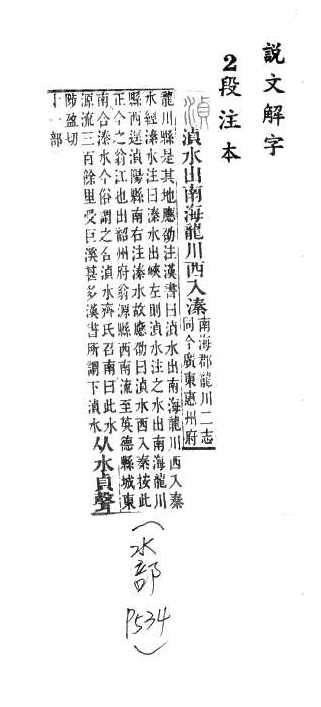 說文解字
2段注本
湞 湞水出南海龍川西入溱南海郡龍川二志同今廣東惠州府
龍川縣是其地應劭注漢書曰湞水出南海龍川西入溱
水經溱水注曰溱水出峽左則湞水注之水出南海龍川
縣西逕湞陽縣南右注溱水故應劭曰湞水西入溱按此
正今之翁江也出韶州府翁源縣西南流至英德縣城東
南合溱水今俗謂之名湞水齊氏召南曰此水
源流三百餘里受巨溪甚多漢書所謂下湞水从水貞聲
陟盈切
十一部
(水部
P534)